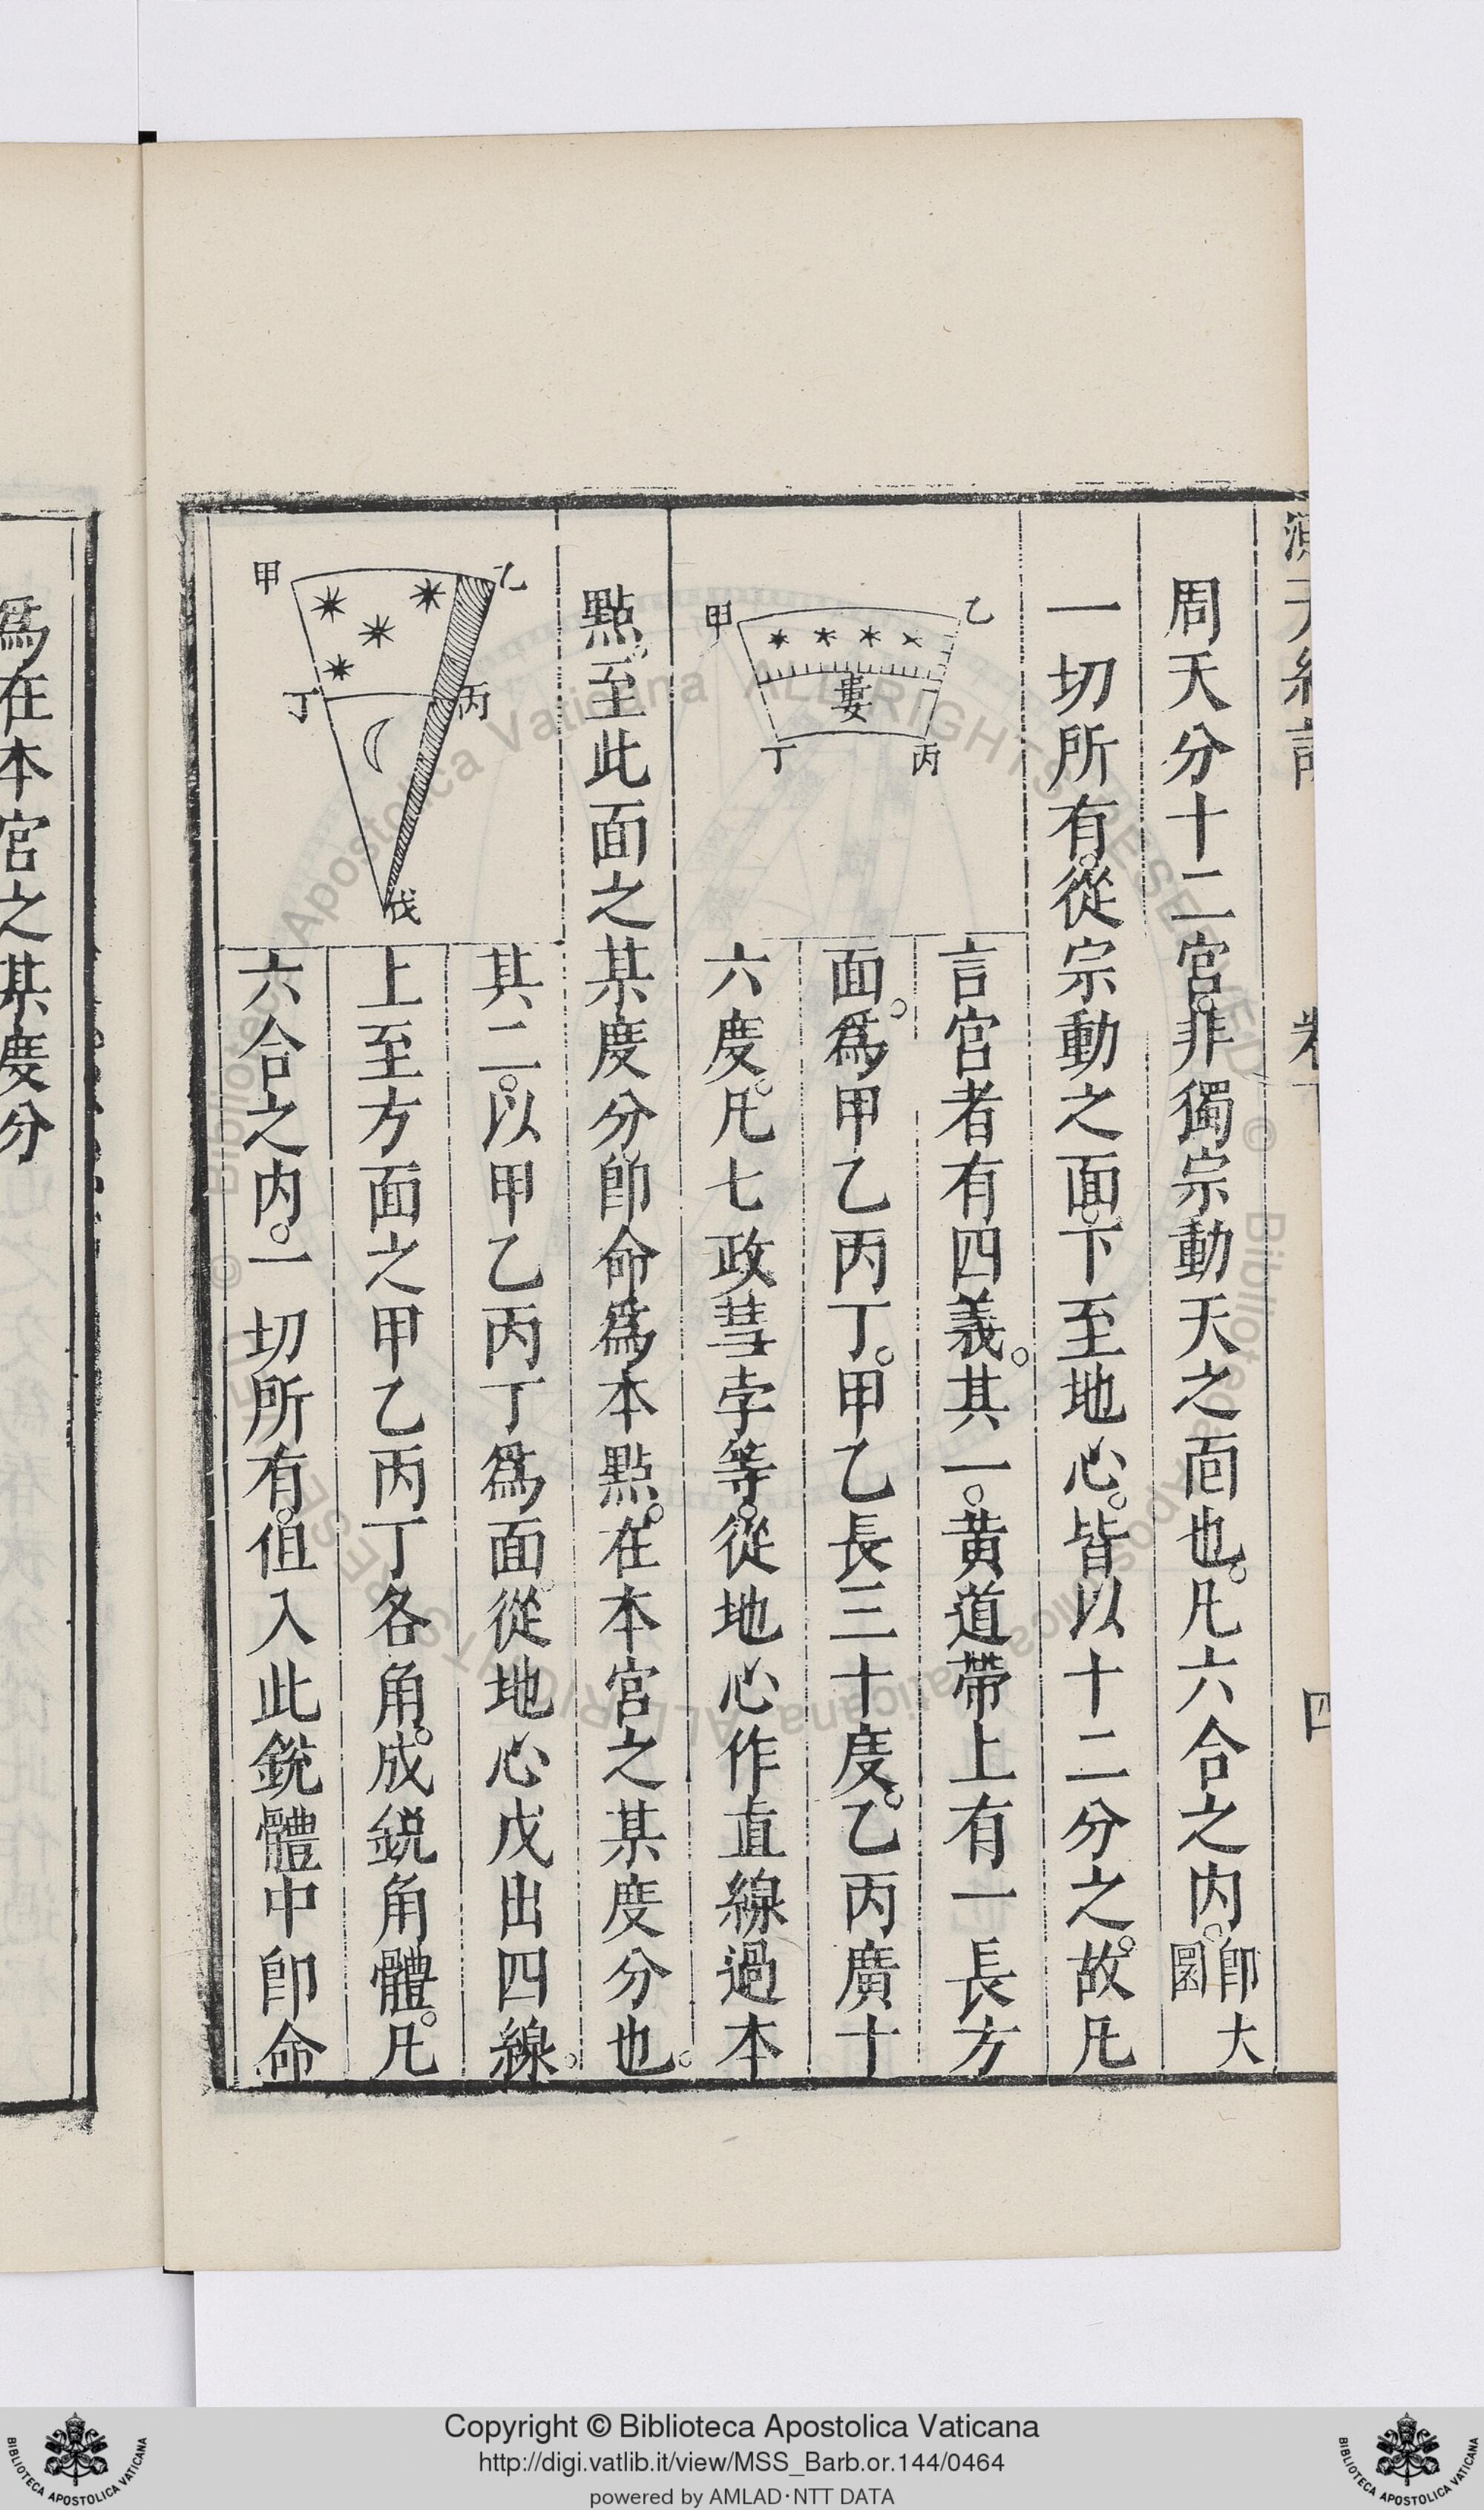 周天分十二宮。非獨宗動天之面也。凡六合之内。即大圜
一切所有。從宗動之面。下至地心。皆以十二分之。故凡
言宮者有四義。其一。黃道帶上有一長方
面。爲甲乙丙丁。甲乙長三十度。乙丙廣十
六度。凡七政彗孛等。從地心作直線過本
點。至此面之某度分即命爲本點。在本宮之某度分也。
其二。以甲乙丙丁爲面。從地心戊出四線。
上至方面之甲乙丙丁各角。成鋭角體。凡
六合之内。一切所有。但入此鋭體中即命
甲
乙
婁
丁
丙
甲
乙
丁
丙
戊
卷
四
爲在本宮之某度分
Copyright © Biblioteca Apostolica Vaticana
http://digi.vatlib.it/view/MSS_Barb.or.144/0464
powered by AMLAD·NTT DATA
BIBLIOTECA APOSTOLICA VATICANA
BIBLIOTECA APOSTOLICA VATICANA